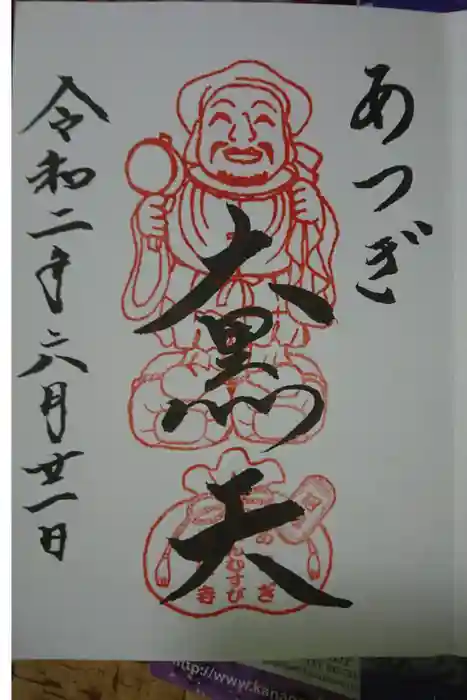 あつぎ
大黒天
令和二年六月廿一日
http://www.kana